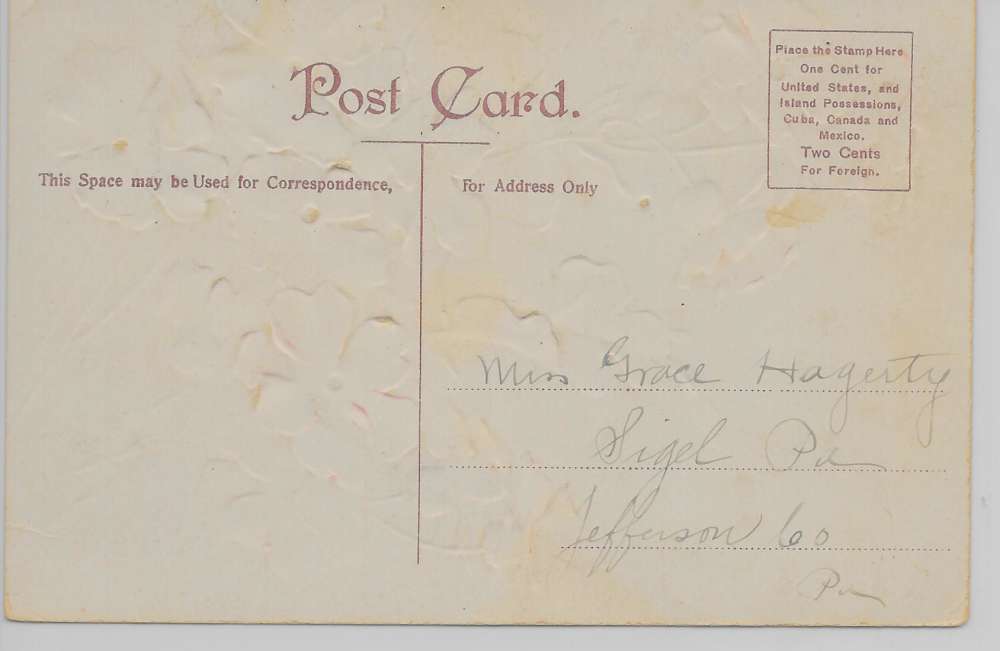 Post Card.
Place the Stamp Here
One Cent for
United States, and
Island Possessions,
Cuba, Canada and
Mexico.
Two Cents
For Foreign.
This Space may be Used for Correspondence,
For Address Only
Miss Grace Hagerty
Sigel Pa
Jefferson Co
Pa